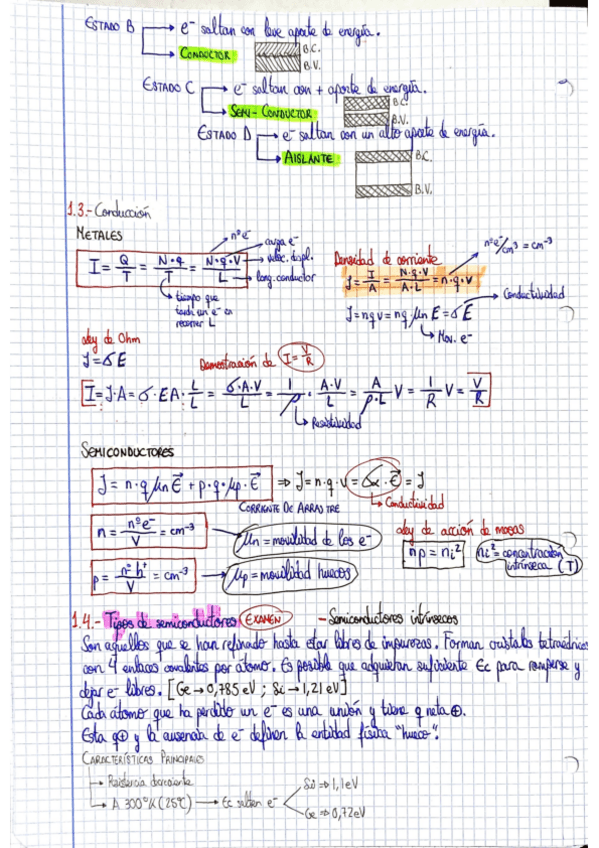 ESTADO B → e⁻ saltan con leve aporte de energía.
→ CONDUCTOR
B.C.
B.V.
ESTADO C → e⁻ saltan con + aporte de energía.
→ SEMI-CONDUCTOR
B.C.
B.V.
ESTADO D → e⁻ saltan con un alto aporte de energía.
→ AISLANTE
B.C.
B.V.
1.3.- Conducción
METALES
I = Q/T = N·q/T = N·q·V/L
nº e⁻
carga e⁻
veloc. despl.
long. conductor
tiempo que
tarda un e⁻ en
recorrer L
Densidad de corriente
J = I/A = N·q·V/A·L = n·q·V
nº e⁻/cm³ = cm⁻³
J = nqv = nq·μn E = σE
Conductividad
Mov. e⁻
Ley de Ohm
J = σE
Demostración de I = V/R
I = J·A = σ·EA·L/L = σ·A·V/L = 1/ρ·A·V/L = A/ρ·L V = 1/R V = V/R
Resistividad
SEMICONDUCTORES
J = n·q μn E⃗ + p·q·μp·E⃗ ⇒ J = n·q·V = σx·E⃗ = J
Conductividad
CORRIENTE DE ARRASTRE
n = nº e⁻/V = cm⁻³
μn = movilidad de los e⁻
Ley de acción de masas
np = ni²
ni² = concentración
intrínseca (T)
p = nº h⁺/V = cm⁻³
μp = movilidad huecos
1.4.- Tipos de semiconductores EXAMEN - Semiconductores intrínsecos
Son aquellos que se han refinado hasta estar libres de impurezas. Forman cristales tetraédricos
con 4 enlaces covalentes por átomo. Es posible que adquieran suficiente Ec para romperse y
dejar e⁻ libres. [Ge → 0,785 eV ; Si → 1,21 eV]
Cada átomo que ha perdido un e⁻ es una unión y tiene q neta ⊕.
Esta q⊕ y la ausencia de e⁻ definen la entidad física "hueco".
CARACTERÍSTICAS PRINCIPALES
→ Resistencia decreciente
→ A 300ºK (25ºC) → Ec saltan e⁻
Si ⇒ 1,1 eV
Ge ⇒ 0,72 eV